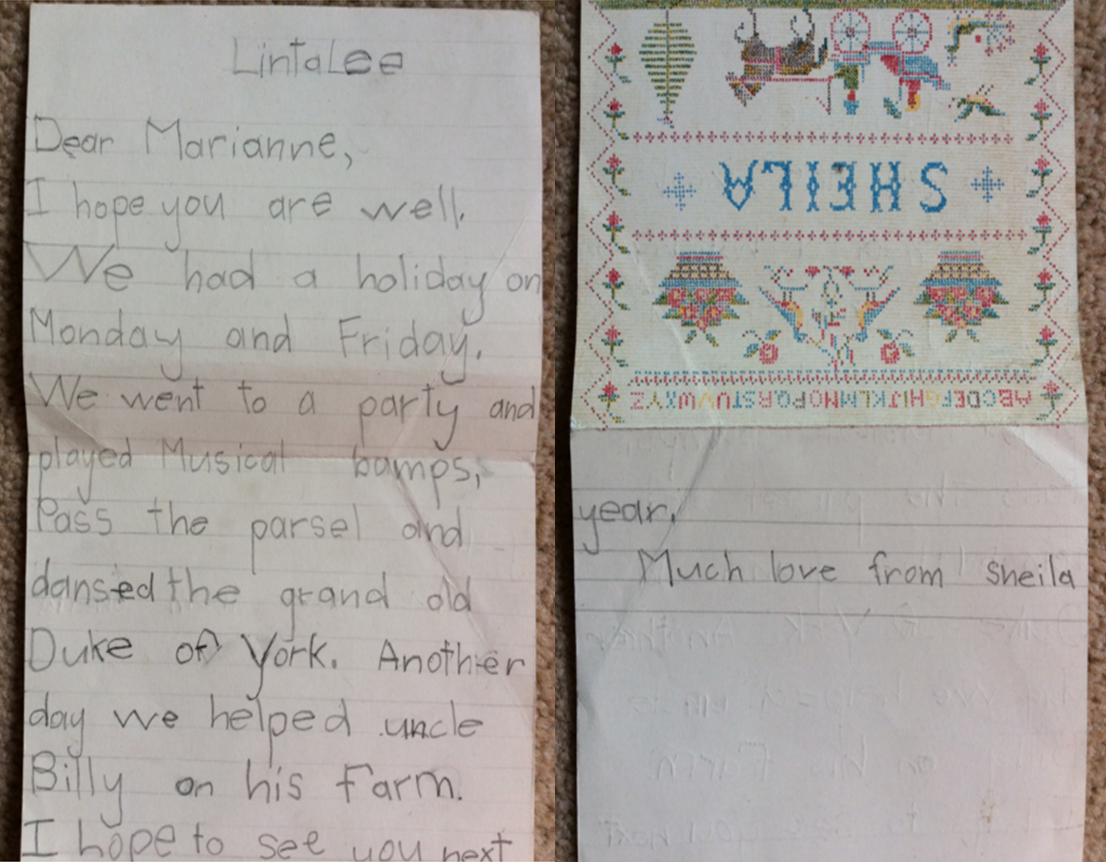 Lintalee
Dear Marianne,
I hope you are well.
We had a holiday on
Monday and Friday.
We went to a party and
played Musical bamps,
Pass the parsel and
dansed the grand old
Duke of York. Another
day we helped uncle
Billy on his Farm.
I hope to see you next
SHEILA
ABCDEFGHIJKLMNOPQRSTUVWXYZ
year.
Much love from Sheila